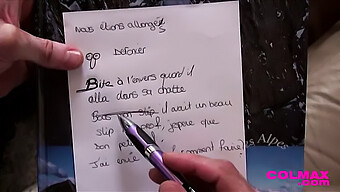 Nous étions allongés
Bite à l'envers quand il
alla dans sa chatte
slip il avait un beau
slip prof, j'espère que
J'ai envie comment faire
Alpes
COLMAX
.com